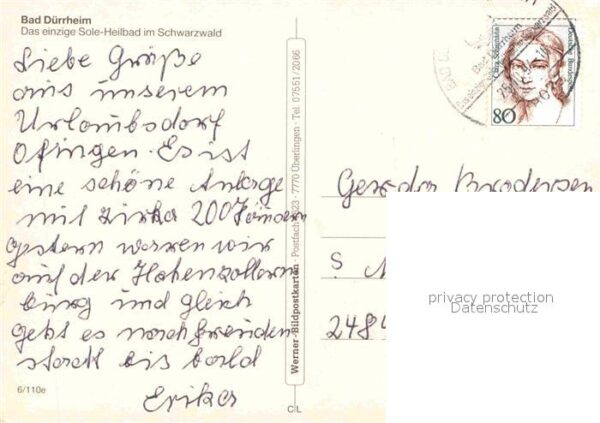 Bad Dürrheim
Das einzige Sole-Heilbad im Schwarzwald
Liebe Grüße
aus unserem
Urlaubsdorf
Öfingen. Es ist
eine schöne Anlage
mit zirka 200 Häusern
gestern waren wir
auf der Hohenzollern
burg und gleich
geht es nach Freuden
stadt bis bald
Erika
6/110e
Werner-Bildpostkarten · Postfach 1523 · 7770 Überlingen · Tel. 07551/2066
C/L
80
Bad Dürrheim
Gerda Brodersen
S
2484
privacy protection
Datenschutz